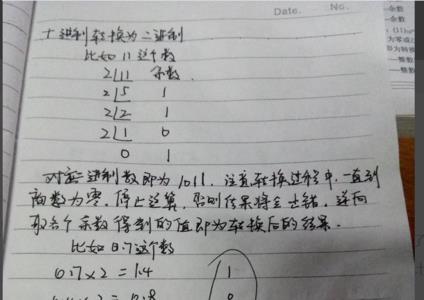 Date.        No.
十进制转换为二进制
比如11这个数
2|11    余数
2|5    1
2|2    1
2|1    0
0    1
对应二进制数即为1011. 注意转换过程中,一直到
商数为零,停止运算,否则结果将会出错,逆向
取各个余数得到的值即为转换后的结果.
比如0.7这个数
0.7×2=1.4    1